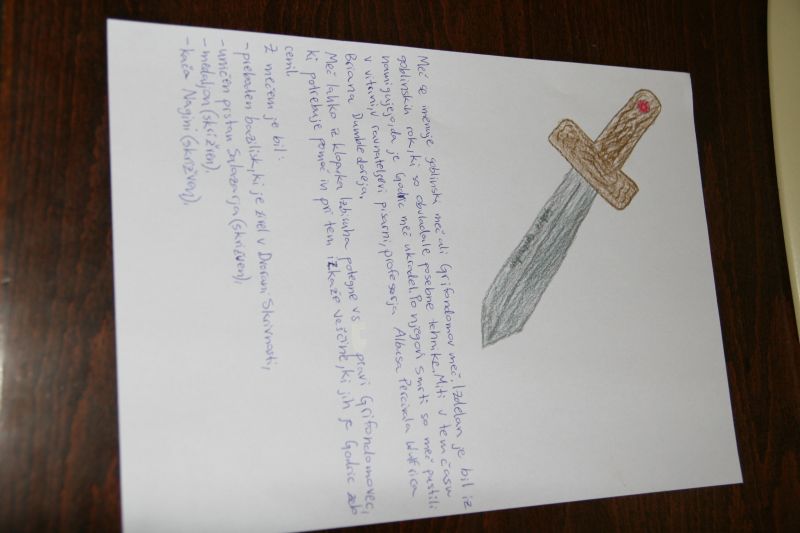 Meč se imenuje goblinski meč ali Grifondomov meč. Izdelan je bil iz
goblinskih rok, ki so obvladale posebne tehnike. Miti v tem času
namigujejo, da je Godric meč ukradel. Po njegovi smrti so meč pustili
v vitrini, v ravnateljevi pisarni, profesorja Albusa Percivala Wulfrica
Briana Dumbledoreja.
Meč lahko iz klobuka Izbiruha potegne vs pravi Grifondomovec,
ki potrebuje pomoč in pri tem izkaže vrline, ki jih je Godric zelo
cenil.
Z mečem je bil:
- preboden bazilisk, ki je živel v Dvorani Skrivnosti,
- uničen prstan Salazarja (skrižven),
- medaljon (skrižven),
- kača Nagini (skrižven).